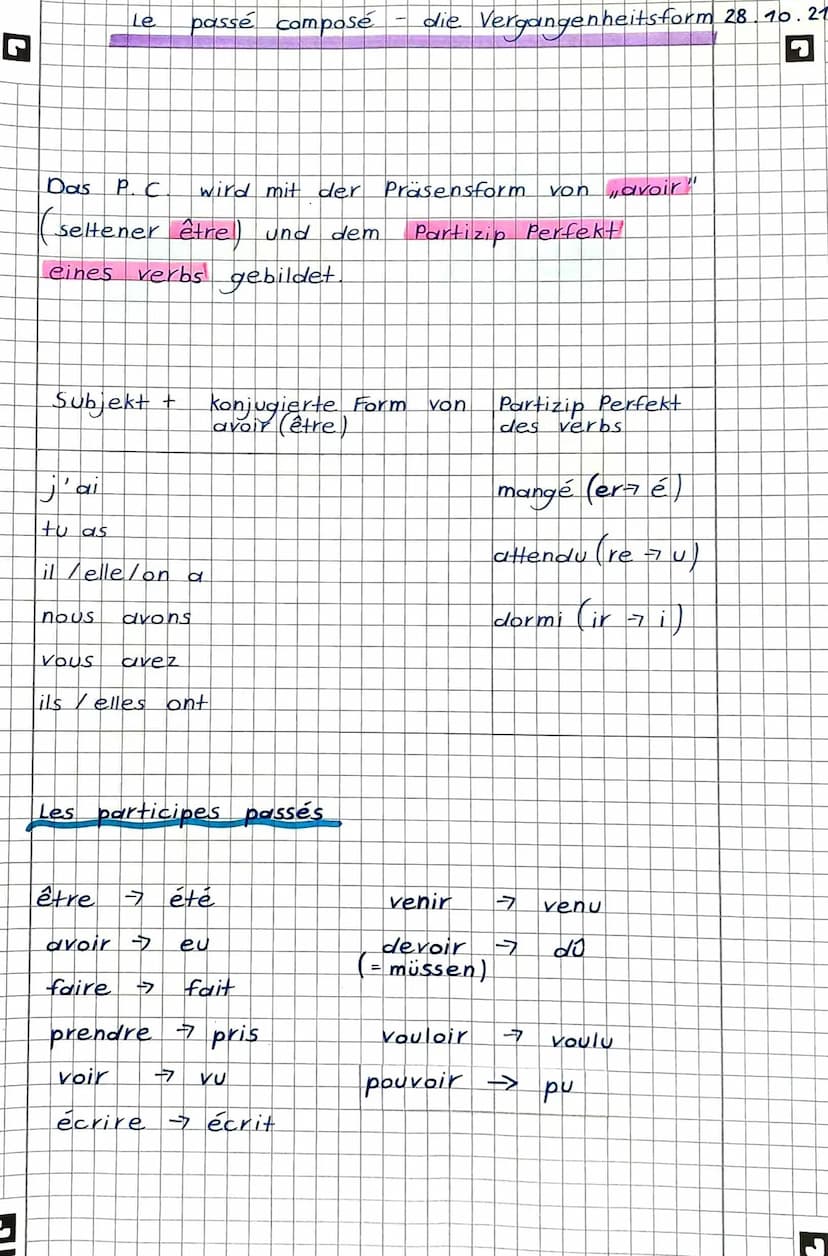 Le passé composé - die Vergangenheitsform 28.10.21
Das P.C. wird mit der Präsensform von „avoir"
(seltener être) und dem Partizip Perfekt
eines verbs gebildet.
Subjekt + konjugierte Form von Partizip Perfekt
avoir (être) des verbs
j'ai mangé (er → é)
tu as
attendu (re → u)
il / elle / on a
nous avons dormi (ir → i)
vous avez
ils / elles ont
Les participes passés
être → été venir → venu
avoir → eu devoir → dû
(= müssen)
faire → fait
prendre → pris vouloir → voulu
voir → vu pouvoir → pu
écrire → écrit